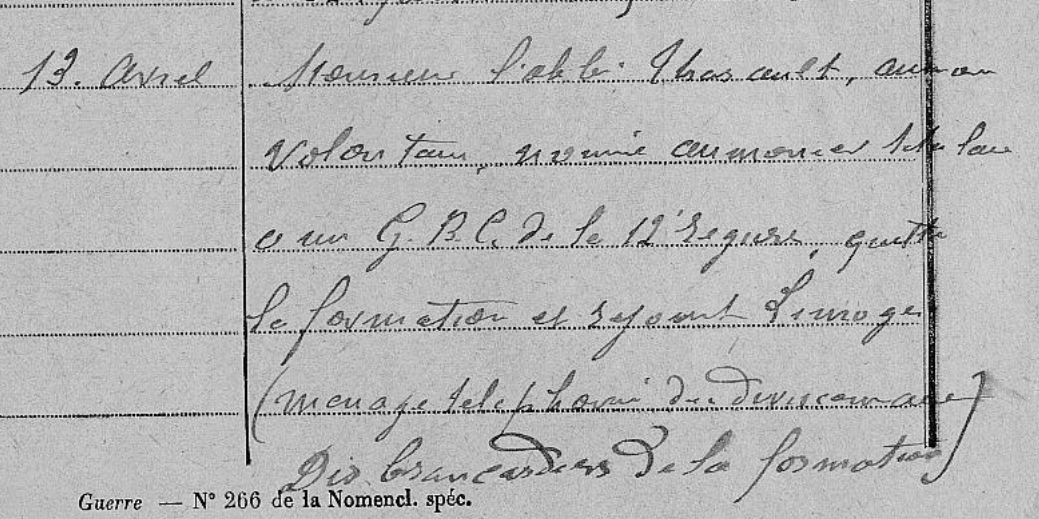 13. Avril Monsieur l'abbé Thomas ault, aumon
volontaire, nommé aumonier titulaire
a un G.B.C. de la 12e Région, quitte
la formation et rejoint Limoges
(message téléphoné du divisionnaire)
Dix brancardiers de la formation
Guerre — N° 266 de la Nomencl. spéc.